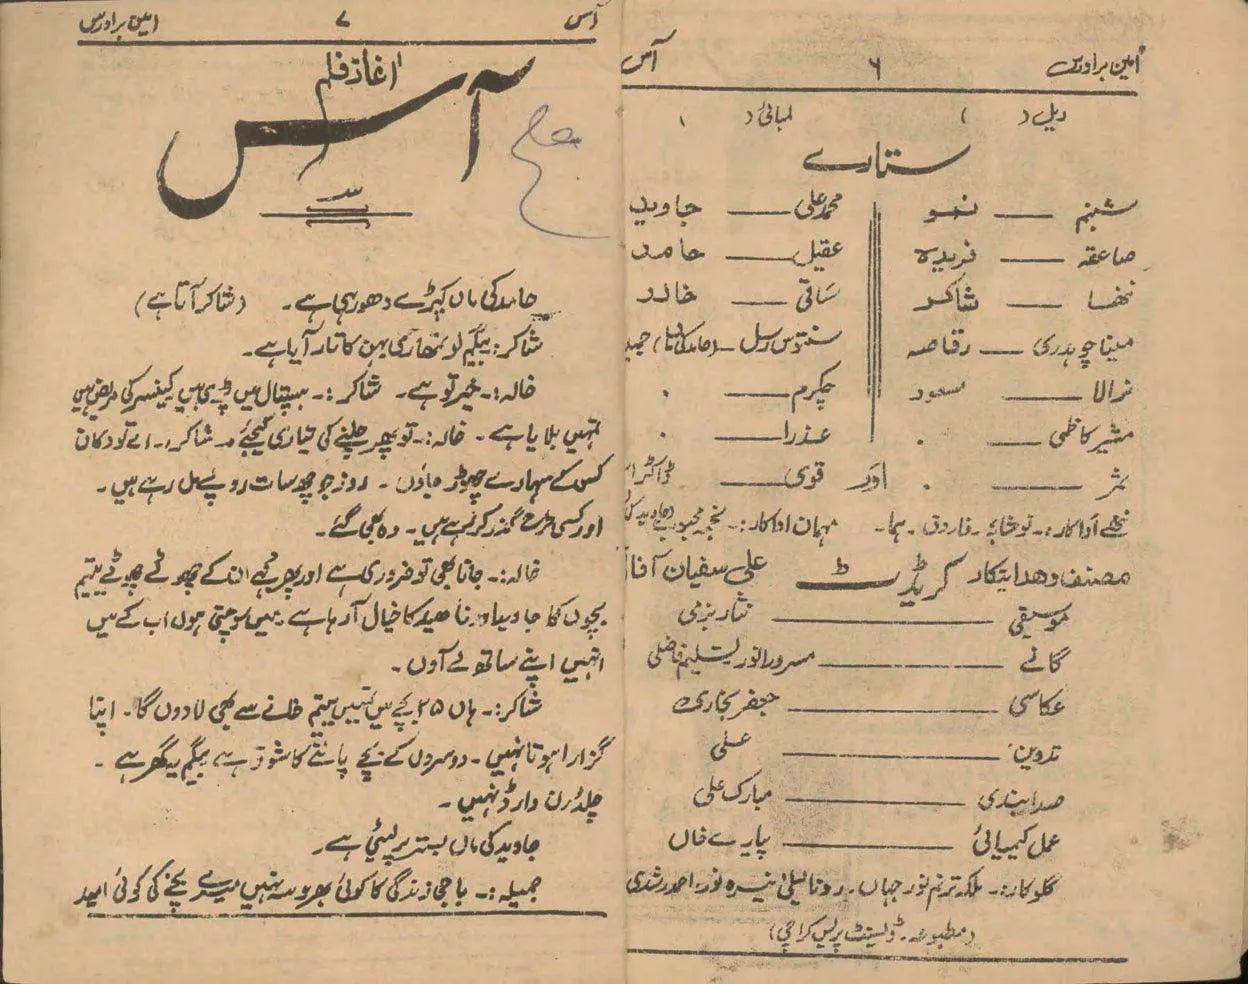 امین برادرس ۶ آس
ریل ( ) لمبائی ( )
ستارے
شبنم — نمو محمد علی — جاوید
صاعقہ — فریدہ عقیل — حامد
ننھا — شاکر ساقی — خالد
مینا چوہدری — رقاصہ سنتوش رسل — (حامد کی ماں)
نرالا — مسعود چکرم — .
مشیر کاظمی — . عذرا — .
ثمر — . اور قوی — ڈاکٹر
ننھے اداکار:۔ نوشابہ ۔ فاروق ۔ ہما۔ مہمان اداکار:۔ نجمہ محبوب (جاوید کی
مصنف و ھدایتکار کریڈٹ علی سفیان آفاقی
موسیقی — نثار بزمی
گانے — مسرور انور، تسلیم فاضلی
عکاسی — جعفر بخاری
تدوین — علی
صدابندی — مبارک علی
عمل کیمیائی — پیارے خاں
گلوکار:۔ ملکہ ترنم نور جہاں۔ رونا لیلیٰ، نیرہ نور، احمد رشدی
(مطبوعہ۔ ڈیسنٹ پریس کراچی)
آس ۷ امین برادرس
آغاز فلم
آس
حامد کی ماں کپڑے دھو رہی ہے۔ (شاکر آتا ہے)
شاکر: بیگم لو تمھاری بہن کا تار آیا ہے۔
خالہ:۔ خیر تو ہے۔ شاکر:۔ ہسپتال میں پڑی ہیں کینسر کی مریض ہیں
تمہیں بلایا ہے۔ خالہ:۔ تو پھر چلنے کی تیاری کیجئے۔ شاکر:۔ اے تو دکان
کس کے سہارے چھوڑ جاؤں۔ روز جو چھ سات روپے مل رہے ہیں۔
اور کسی طرح گذر کر رہے ہیں۔ وہ بھی گئے۔
خالہ:۔ جانا بھی تو ضروری ہے اور پھر مجھے ان کے چھوٹے چھوٹے یتیم
بچوں کا جاوید اور ناھید کا خیال آ رہا ہے میں سوچتی ہوں اب کے میں
انہیں اپنے ساتھ لے آوں۔
شاکر:۔ ہاں ۲۵ بچے میں تمہیں یتیم خانے سے بھی لا دوں گا۔ اپنا
گزارا ہوتا نہیں۔ دوسروں کے بچے پالنے کا شوق ہے بیگم یہ گھر ہے۔
چلڈرن وارڈ نہیں۔
جاوید کی ماں بستر پر لیٹی ہے۔
جمیلہ:۔ باجی زندگی کا کوئی بھروسہ نہیں میرے بچنے کی کوئی امید